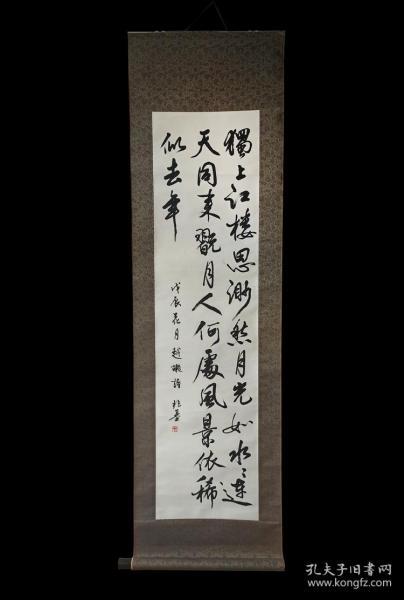 獨上江楼思渺然月光如水〻連
天同来翫月人何處風景依稀
似去年
戊辰花月 趙嘏詩
孔夫子旧书网
www.kongfz.com